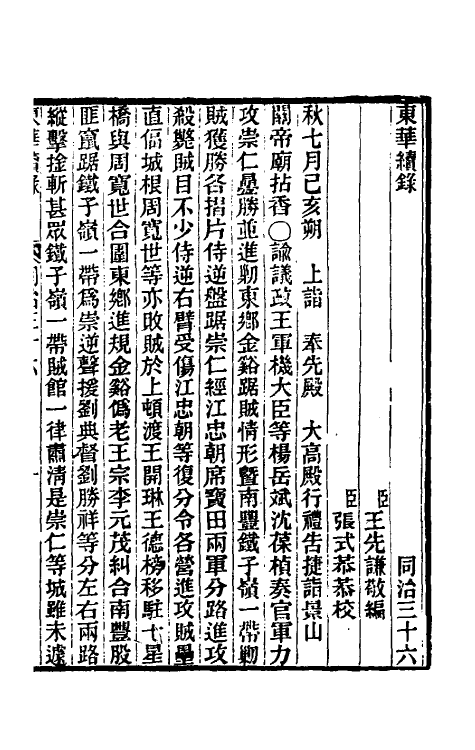 東華續錄 同治三十六
臣王先謙敬編
臣張式恭恭校
秋七月己亥朔 上詣 奉先殿 大高殿行禮告捷詣景山
關帝廟拈香○諭議政王軍機大臣等楊岳斌沈葆楨奏官軍力
攻崇仁壘勝並進剿東鄉金谿踞賊情形暨南豐鐵子嶺一帶剿
賊獲勝各摺片侍逆盤踞崇仁經江忠朝席寶田兩軍分路進攻
殺斃賊目不少侍逆右臂受傷江忠朝等復分令各營進攻賊壘
直偪城根周寬世等亦敗賊於上頓渡王開琳王德榜移駐七星
橋與周寬世合圍東鄉進規金谿僞老王宗李元茂糾合南豐股
匪竄踞鐵子嶺一帶爲崇逆聲援劉典督劉勝祥等分左右兩路
縱擊擒斬甚眾鐵子嶺一帶賊館一律肅清是崇仁等城雖未遽
東華續錄 同治三十六 一